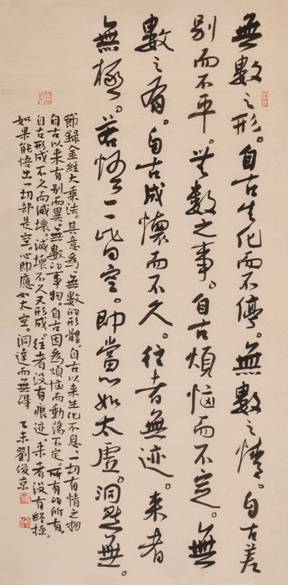 無數之形。自古生化而不停。無數之情。自古差
別而不平。無數之事。自古煩惱而不定。無
數之有。自古成壞而不久。往者無迹。來者
無極。若悟一一皆空。即當心如太虛。洞然無
節錄金經大乘法。其意為無數的形體。自古以來生化不息。一切有情之物
自古以來有別而異。無數的事物自古因為煩惱而動蕩不定。所有的所有
自古形成不久而滅壞。滅壞不久又形成。往者沒有痕迹。來者沒有終極。
如果能悟出一切都是空。心即應如太空。洞達而無碍。乙未劉俊京